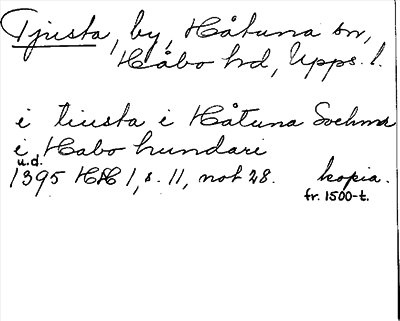 Tjusta, by, Håtuna sn,
Håbo hd, Upps. l.
i tiusta i Håtuna Sochna
i Habo hundari
u.d.
1395 HH 1, s. 11, not 28. kopia.
fr. 1500-t.